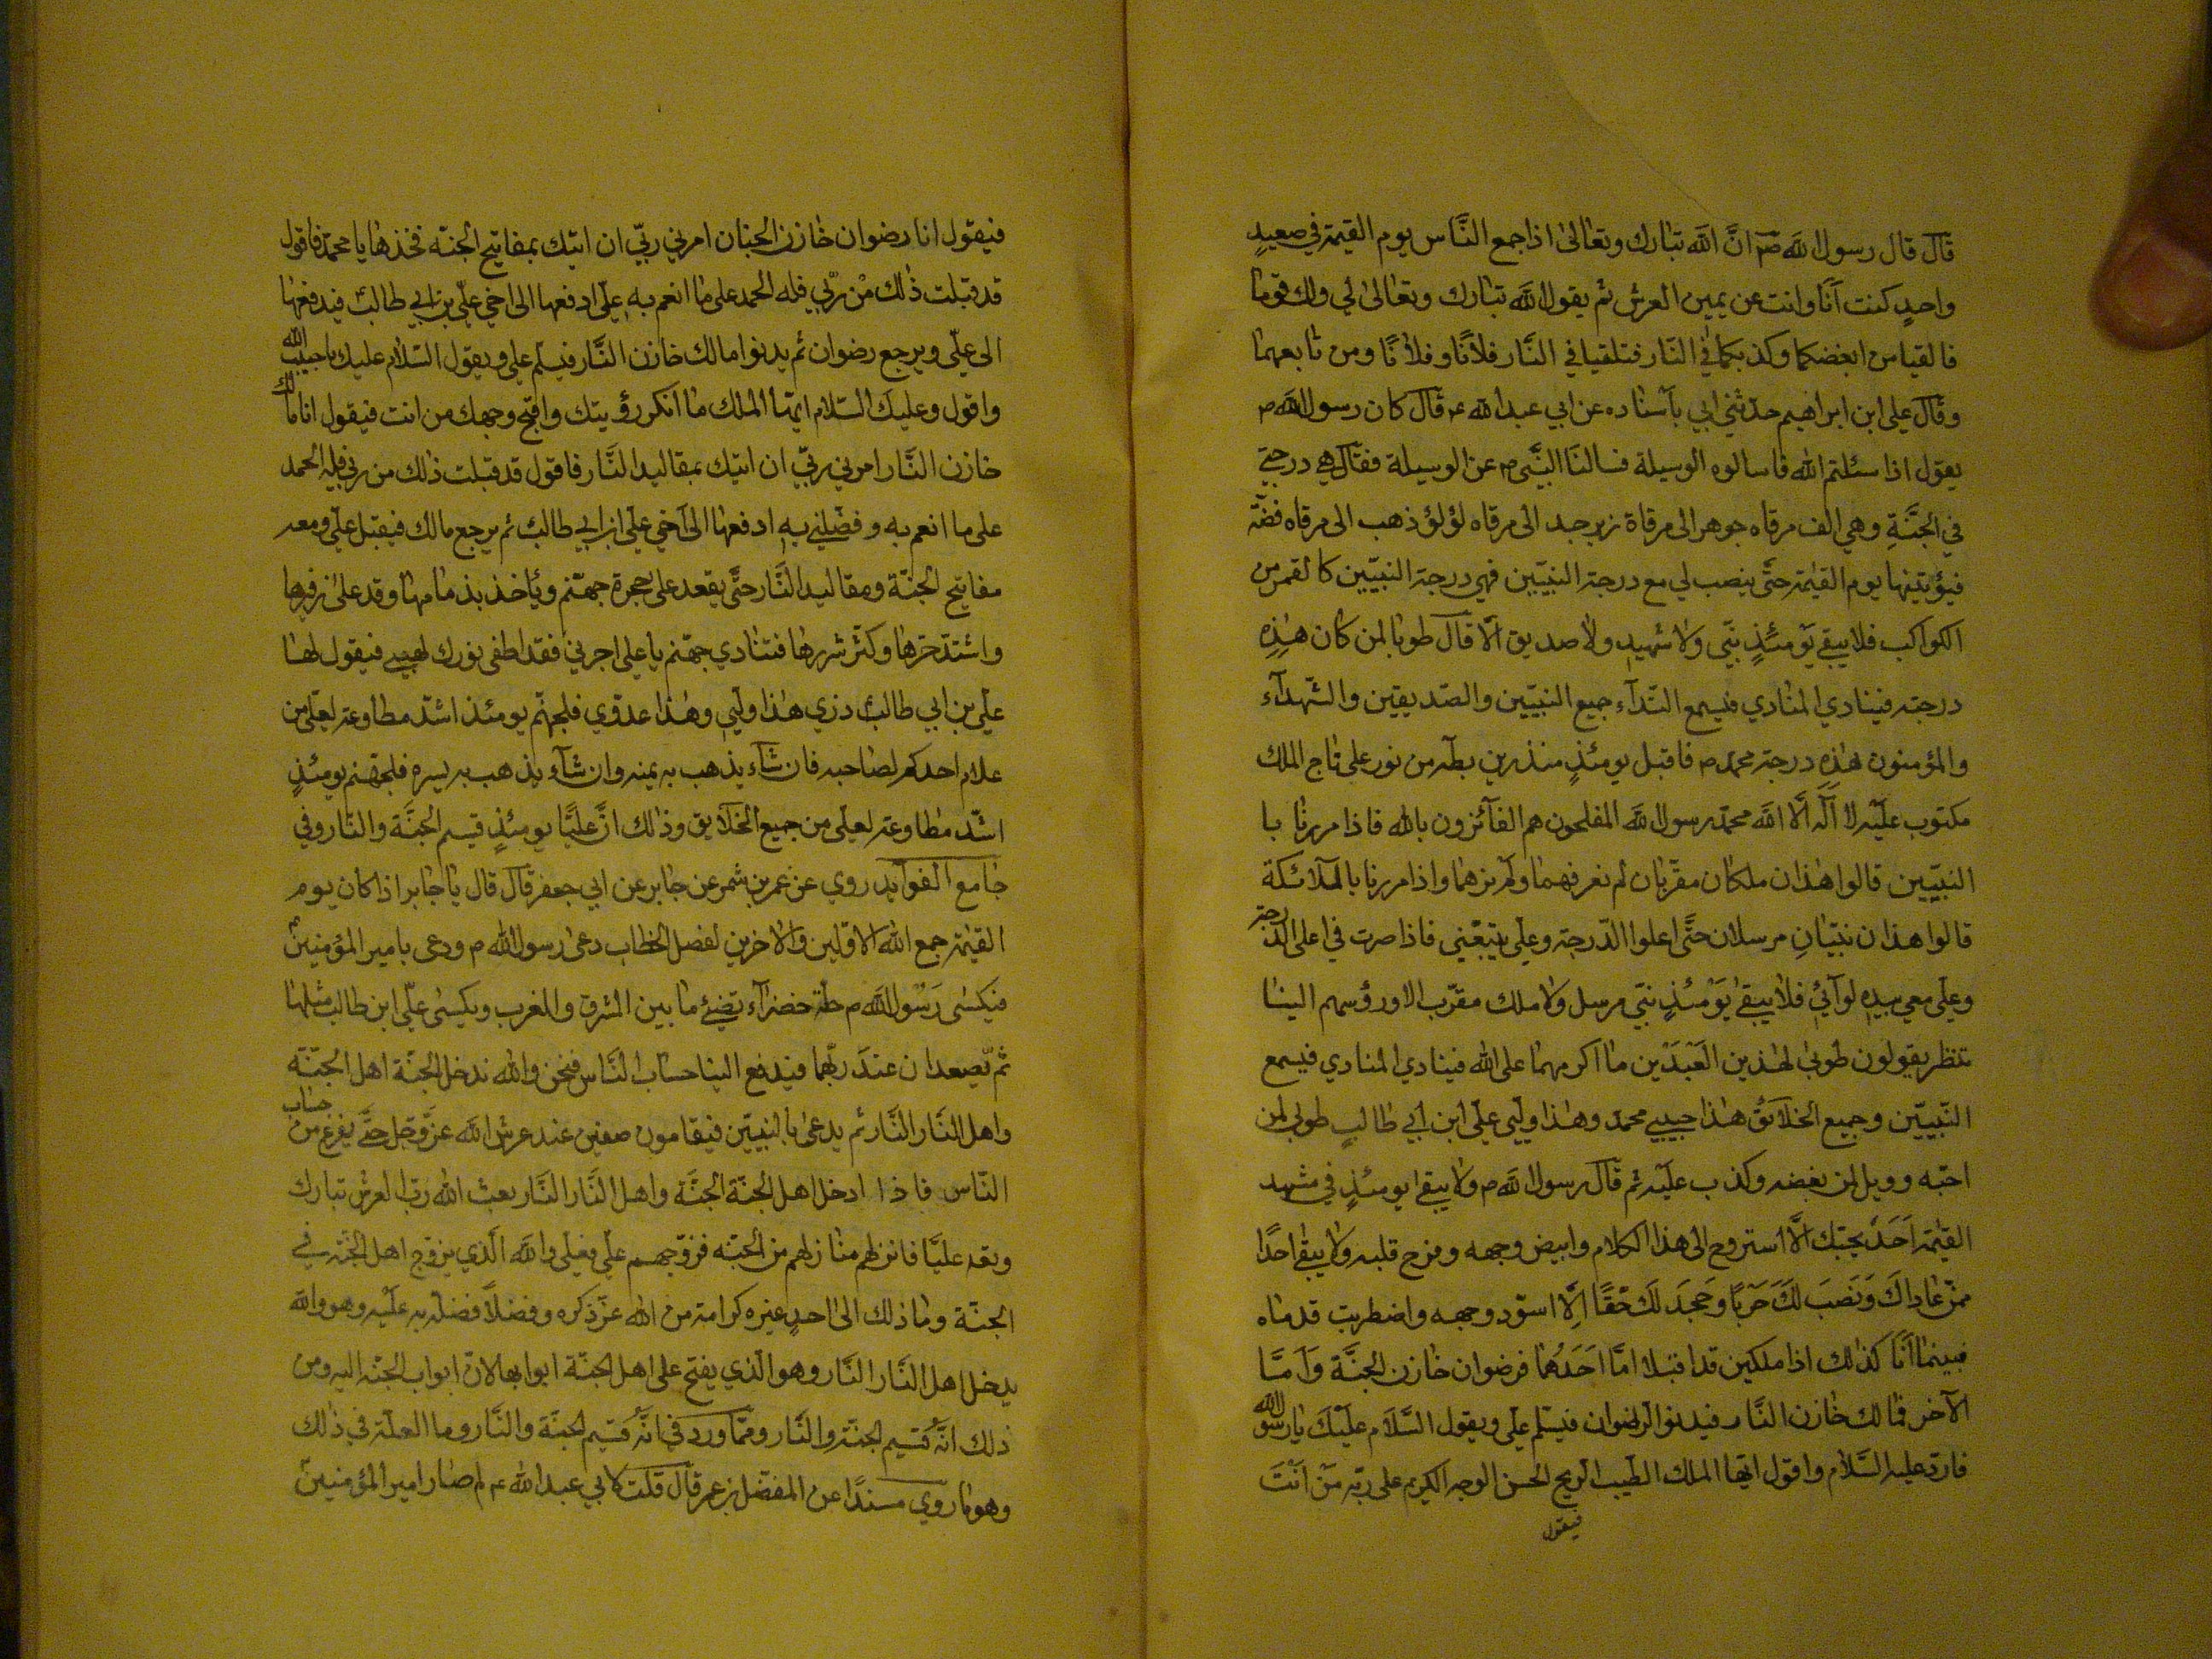 قال قال رسول الله صم انَّ الله تبارك وتعالى اذا جمع النَّاس يوم القيمة في صعيدٍ
واحدٍ كنت اَنَا وانت عن يمين العرش ثم يقول الله تبارك وتعالى لي ولك قوما
فالقيا من ابغضكما وكذبكما في النّار فتلقيا في النَّار فلانًا وفلانًا ومن تابعهما
وقال علي ابن ابراهيم حدثني ابي بآسناده عن ابي عبد الله ع قال كان رسول الله ص
يقول اذا سئلتم الله فاسالوه الوسيلة فسالنا النَّبي ص عن الوسيلة فقال هي درجتي
في الجنَّةِ وهي الف مرقاه جوهر الى مرقاة زبرجد الى مرقاه لؤلؤ ذهب الى مرقاه فضّة
فيؤتينها يوم القيمة حتّى ينصب لي مع درجة النبيّين فهي درجة النبيّين كالقمر من
الكواكب فلا يبقى يَوْمئذٍ نبّي ولا شهيدٍ ولا صديق الّا قال طوبا لمن كان هذِهِ
درجته فينادي المنادي فيسمع النّدآء جميع النبيّين والصّديقين والشّهدآء
والمؤمنون هذه درجة محمد ص فاقبل يومئذٍ منذرين بطه من نور على تاج الملك
مكتوب علَيْه لا اله الّا الله محمّد رسول الله المفلحون هم الفآئزون بالله فاذا مررنا با
النبيّين قالوا هذان ملكان مقرّبان لم نعرفهما ولم نرهما واذا مررنا بالملآئكة
قالوا هذان نبيّانِ مرسلان حتَّى اعلوا الدّرجة وعلي يتبعْني فاذا صرت في اعلى الدّرجة
وعلّي معي بيدِه لوآئي فلا يبقى يَوْمئذٍ نبّي مرسل ولا ملك مقرّب الا ورؤسهم الينا
تنظر يقولون طوبى لهذين العَبْدَين ما اكرمهما على الله فينادي المنادي فيسمع
النّبيّين وجميع الخلآئق هذا حبيبي محمد وهذا وليّي علّي ابن ابي طالبٍ طوبى لمن
احبّه وويل لمن بغضه وكذب علَيْه ثم قال رسول الله ص ولا يبقى يومئذٍ في مشهد
القيمة اَحَدٌ يحبّك الَّا استروح الى هذا الكلام وابيض وجهه وفرح قلبه ولا يبقى احدًا
ممّن عاداكَ وَنَصَبَ لَكَ حَرْبًا وجَحَدَ لَكَ حَقًّا اِلَّا اسوّد وجهه واضطربت قدماه
فبينما اَنَا كذلك اذا ملكين قد اقبلا امَّا اَحَدُهما فرضوان خازن الجنَّة وَاَمَّا
الآخر فمالك خازن النَّار فيدنوا لرضوان فيسّلم علّي ويقول السَّلام علَيْكَ يا رسول الله
فاردّ عليه السَّلام واقول ايّها الملك الطّيب الريح الحسن الوجه الكريم على ربّه مَنْ اَنْتَ
فيقول
فيقول انا رضوان خازن الجنان امرني ربّي ان اتيك بمفاتيح الجنّه فخذها يا محمّد فاقول
قد قبلت ذلك مْن ربّي فله الحمد على ما انعم به علّي ادفعها الى اخي علّي بن ابي طالب فيدفعها
الى علّي ويرجع رضوان ثم يدنوا مالك خازن النَّار فيسلّم علي ويقول السّلام عليك يا حبيب الله
واقول وعليك السّلام ايّها الملك ما انكر رؤيتك واقبح وجهك من انت فيقول انا مالك
خازن النَّار امرني ربّي ان اتيك بمقاليد النَّار فاقول قد قبلت ذلك من ربي فله الحمد
على ما انعم به وفضّلني به ادفعها الى اخي علّي ابن ابي طالب ثم يرجع مالك فيقبل علّي ومعه
مفاتيح الجنّة ومقاليد النَّار حتَّى يقعد على حجرة جهنّم ويأخذ بذمامها وقد على زفيرها
واشتدّ حرّها وكثر شررها فتنادي جهنّم يا علي اجرني فقد اطفى نورك لهبي فيقول لها
علّي بن ابي طالب ذري هذا وليّي وهذا عدوّي فلجهنّم يومئذ اشدّ مطاوعة لعلّي من
علام احدكم لصاحبه فان شآء يذهب به يمنه وان شآء يذهب به يسره فلجهنم يومئذٍ
اشّد مطاوعة لعلّى من جميع الخلآيق وذلك انَّ عليًّا يومئذٍ قسيم الجنَّة والنّار وفي
جامع الفوآيد روي عن عمر بن شمر عن جابر عن ابي جعفر قال قال يا جابر اذا كان يوم
القيمة جمع الله الاوّلين والاخرين لفصل الخطاب دعى رسول الله ص ودعى بامير المؤمنين ع
فيكسى رَسُول الله ص حلّة خضرآء تضيئ ما بين المشرق والمغرب ويكسى علّي ابن طالب مثلها
ثمّ يصعدان عندَ ربّهما فيدفع الينا حساب النَّاس فنحن والله ندخل الجنّة اهل الجنّة
واهل النَّار النَّار ثم يدعى بالنبيّين فيقامون صفين عند عرش الله عزّ وجل حتَّى يفرغ من حساب
النّاس فاذا ادخل اهل الجنّة الجنَّة واهل النَّار النَّار بعث الله ربّ العرش تبارك
وتعه عليَّا فانزلهم منازلهم من الجنّه فزوّجهم علّي فعلي والله الّذي يزوّج اهل الجنّة في
الجنّة وما ذلك الى احدٍ غيره كرامة من الله عزّ ذكره وفضلاً فضله به علَيْه وهو والله
يدخل اهل النَّار النَّار وهو الّذي يفتح على اهل الجنّة ابوابها لانّ ابواب الجنّه اليه ومن
ذلك انّه قسيم الجنّة والنَّار وممّا ورد في انّه قسيم الجنّة والنَّار وما العلّة في ذلك
وهو ما روي مسندًا عن المفضّل بن عمر قال قلت لابي عبد الله ع لم صار امير المؤمنين